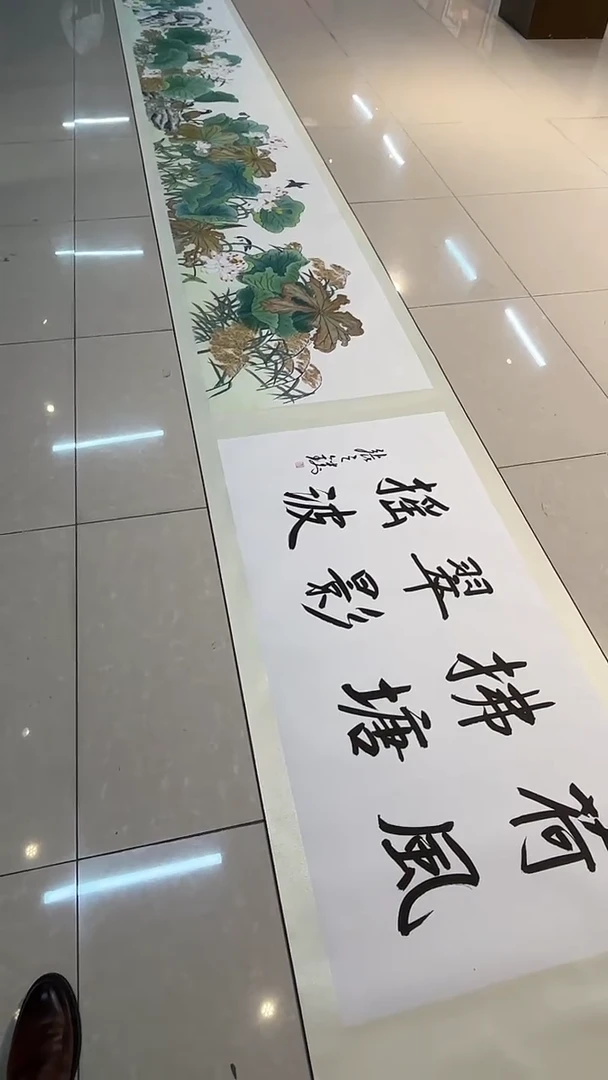 荷風
拂塘
翠影
摇波